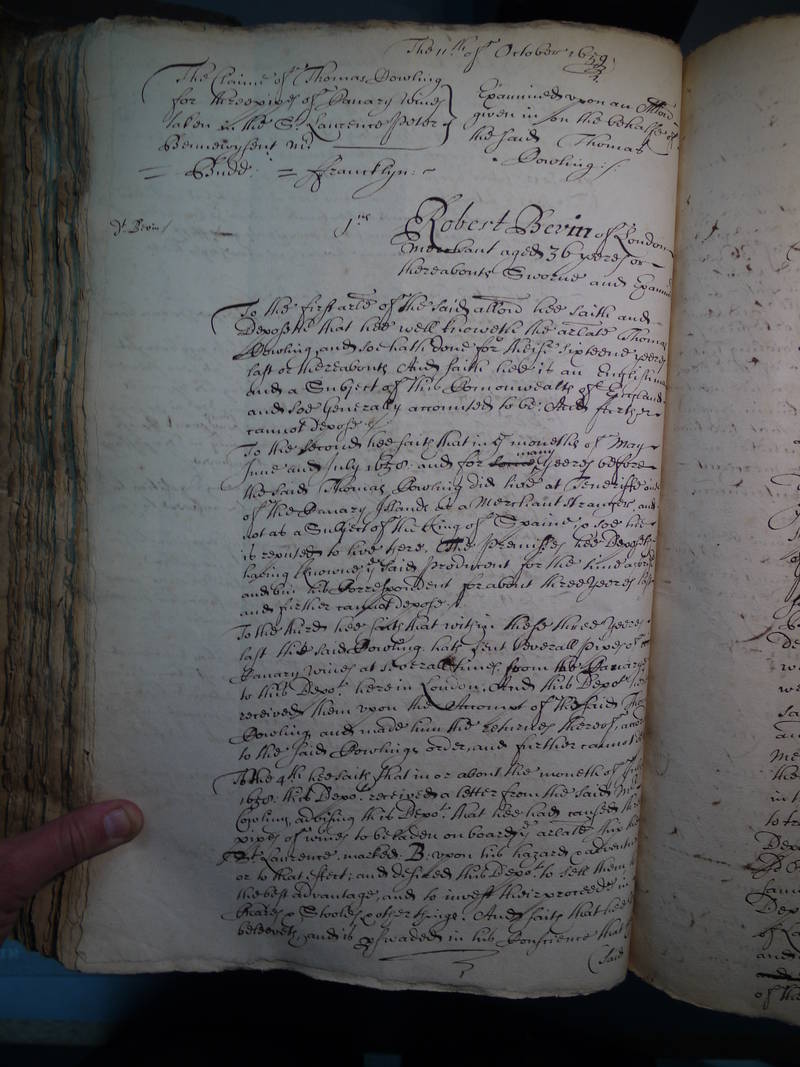 The 11th of October 1659
The Claime of Thomas Cowling
for three pipes of Canary Wines
taken in the St. Laurence Peter
Bennevoysent Mr
Budd = ffrancklyn:
Examined upon an Allon
given in on the behalfe of
the said Thomas
Cowling:
Dt. Bevin
1us
Robert Bevin of London
Merchant aged 36 yeeres or
thereabouts Sworne and Examined
To the first arle of the said allon hee saith and
Deposeth that hee well knoweth the arlate Thomas
Cowling, and soe hath done for theise sixteene yeeres
last or thereabouts And saith hee is an Englishman
and a Subject of this Comonwealth of England
and soe generally accounted to be: And further
cannot depose
To the second hee saith that in ye moneths of May
June and July 1658. and for some many yeeres before
the said Thomas Cowling did live at Teneriffe one
of the Canary Islands as a Merchant stranger, and
not as a Subject of the King of Spaine, or soe hee
is reputed to live there. The premisses hee deposeth
having knowne ye said producent for the time aforesd
and bin his Correspondent for about three yeeres last
and further cannot depose
To the third hee saith that within theise three yeeres
last the said Cowling hath sent severall pipes of
Canary wines at severall times, from the Canaries
to this Depot. here in London, And this Depot. hath
received them upon the Accompt of the said Tho:
Cowling and made him the returnes thereof, according
to the said Cowlings order, and further cannot
To the 4th hee saith that in or about the moneth of
1658. this Depot. received a letter from the said Mr
Cowling, advising this Depot. that hee had caused three
pipes of wines to be laden on board ye arlate ship the
St Laurence, marked B: upon his hazard & adventure
or to that effect; and desired this Depot. to sell them to
the best advantage, and to invest their proceede in
& other things. And saith that hee
beleeveth, and is perswaded in his Conscience that
said